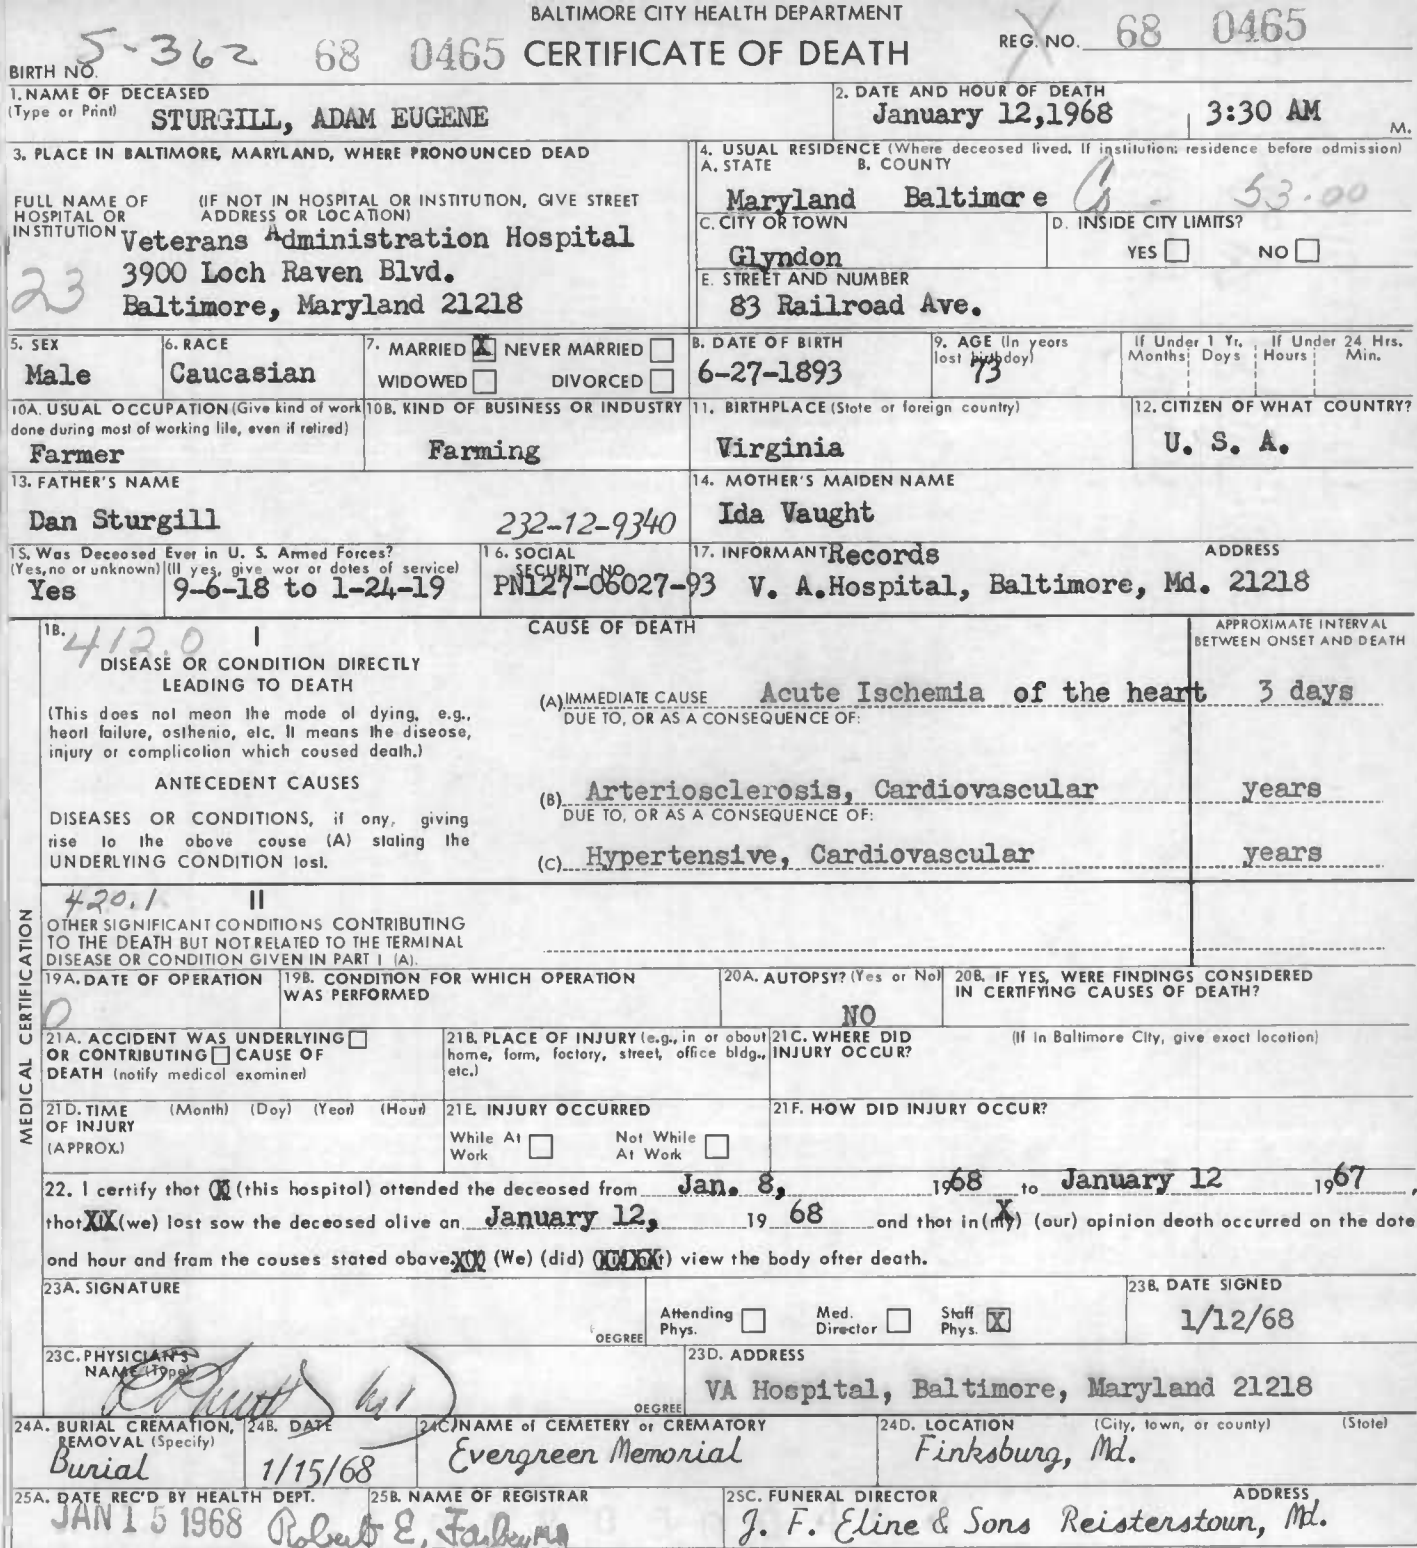 BALTIMORE CITY HEALTH DEPARTMENT
5-362 68 0465 CERTIFICATE OF DEATH REG. NO. 68 0465
BIRTH NO.
1. NAME OF DECEASED
(Type or Print) STURGILL, ADAM EUGENE
2. DATE AND HOUR OF DEATH
January 12,1968 3:30 AM M.
3. PLACE IN BALTIMORE, MARYLAND, WHERE PRONOUNCED DEAD
FULL NAME OF HOSPITAL OR INSTITUTION
(IF NOT IN HOSPITAL OR INSTITUTION, GIVE STREET
ADDRESS OR LOCATION)
Veterans Administration Hospital
23 3900 Loch Raven Blvd.
Baltimore, Maryland 21218
4. USUAL RESIDENCE (Where deceased lived. If institution: residence before admission)
A. STATE B. COUNTY
Maryland Baltimore Co - 53.00
C. CITY OR TOWN
Glyndon
D. INSIDE CITY LIMITS?
YES NO
E. STREET AND NUMBER
83 Railroad Ave.
5. SEX
Male
6. RACE
Caucasian
7. MARRIED X NEVER MARRIED
WIDOWED DIVORCED
8. DATE OF BIRTH
6-27-1893
9. AGE (In years
last birthday)
73
If Under 1 Yr. If Under 24 Hrs.
Months Days Hours Min.
10A. USUAL OCCUPATION (Give kind of work
done during most of working life, even if retired)
Farmer
10B. KIND OF BUSINESS OR INDUSTRY
Farming
11. BIRTHPLACE (State or foreign country)
Virginia
12. CITIZEN OF WHAT COUNTRY?
U. S. A.
13. FATHER'S NAME
Dan Sturgill 232-12-9340
14. MOTHER'S MAIDEN NAME
Ida Vaught
15. Was Deceased Ever in U. S. Armed Forces?
(Yes, no or unknown) (If yes, give war or dates of service)
Yes 9-6-18 to 1-24-19
16. SOCIAL
SECURITY NO.
PN127-06027-93
17. INFORMANT Records ADDRESS
V. A.Hospital, Baltimore, Md. 21218
MEDICAL CERTIFICATION
18. 412.0 I
CAUSE OF DEATH
APPROXIMATE INTERVAL
BETWEEN ONSET AND DEATH
DISEASE OR CONDITION DIRECTLY
LEADING TO DEATH
(This does not mean the mode of dying, e.g.,
heart failure, asthenia, etc. It means the disease,
injury or complication which caused death.)
(A) IMMEDIATE CAUSE Acute Ischemia of the heart 3 days
DUE TO, OR AS A CONSEQUENCE OF:
ANTECEDENT CAUSES
DISEASES OR CONDITIONS, if any, giving
rise to the above cause (A) stating the
UNDERLYING CONDITION last.
(B) Arteriosclerosis, Cardiovascular years
DUE TO, OR AS A CONSEQUENCE OF:
(C) Hypertensive, Cardiovascular years
420.1 II
OTHER SIGNIFICANT CONDITIONS CONTRIBUTING
TO THE DEATH BUT NOT RELATED TO THE TERMINAL
DISEASE OR CONDITION GIVEN IN PART I (A).
19A. DATE OF OPERATION
0
19B. CONDITION FOR WHICH OPERATION
WAS PERFORMED
20A. AUTOPSY? (Yes or No)
NO
20B. IF YES, WERE FINDINGS CONSIDERED
IN CERTIFYING CAUSES OF DEATH?
21A. ACCIDENT WAS UNDERLYING
OR CONTRIBUTING CAUSE OF
DEATH (notify medical examiner)
21B. PLACE OF INJURY (e.g., in or about
home, farm, factory, street, office bldg.,
etc.)
21C. WHERE DID (If in Baltimore City, give exact location)
INJURY OCCUR?
21D. TIME (Month) (Day) (Year) (Hour)
OF INJURY
(APPROX.)
21E. INJURY OCCURRED
While At Work Not While At Work
21F. HOW DID INJURY OCCUR?
22. I certify that (this hospital) attended the deceased from Jan. 8, 1968 to January 12 1967,
that (we) last saw the deceased alive on January 12, 19 68 and that in (my) (our) opinion death occurred on the date
and hour and from the causes stated above. (We) (did) view the body after death.
23A. SIGNATURE
DEGREE
Attending Phys. Med. Director Staff Phys. X
23B. DATE SIGNED
1/12/68
23C. PHYSICIAN'S
NAME (Type)
DEGREE
23D. ADDRESS
VA Hospital, Baltimore, Maryland 21218
24A. BURIAL CREMATION,
REMOVAL (Specify)
Burial
24B. DATE
1/15/68
24C. NAME of CEMETERY or CREMATORY
Evergreen Memorial
24D. LOCATION (City, town, or county) (State)
Finksburg, Md.
25A. DATE REC'D BY HEALTH DEPT.
JAN 15 1968
25B. NAME OF REGISTRAR
Robert E. Farber
25C. FUNERAL DIRECTOR ADDRESS
J. F. Eline & Sons Reisterstown, Md.